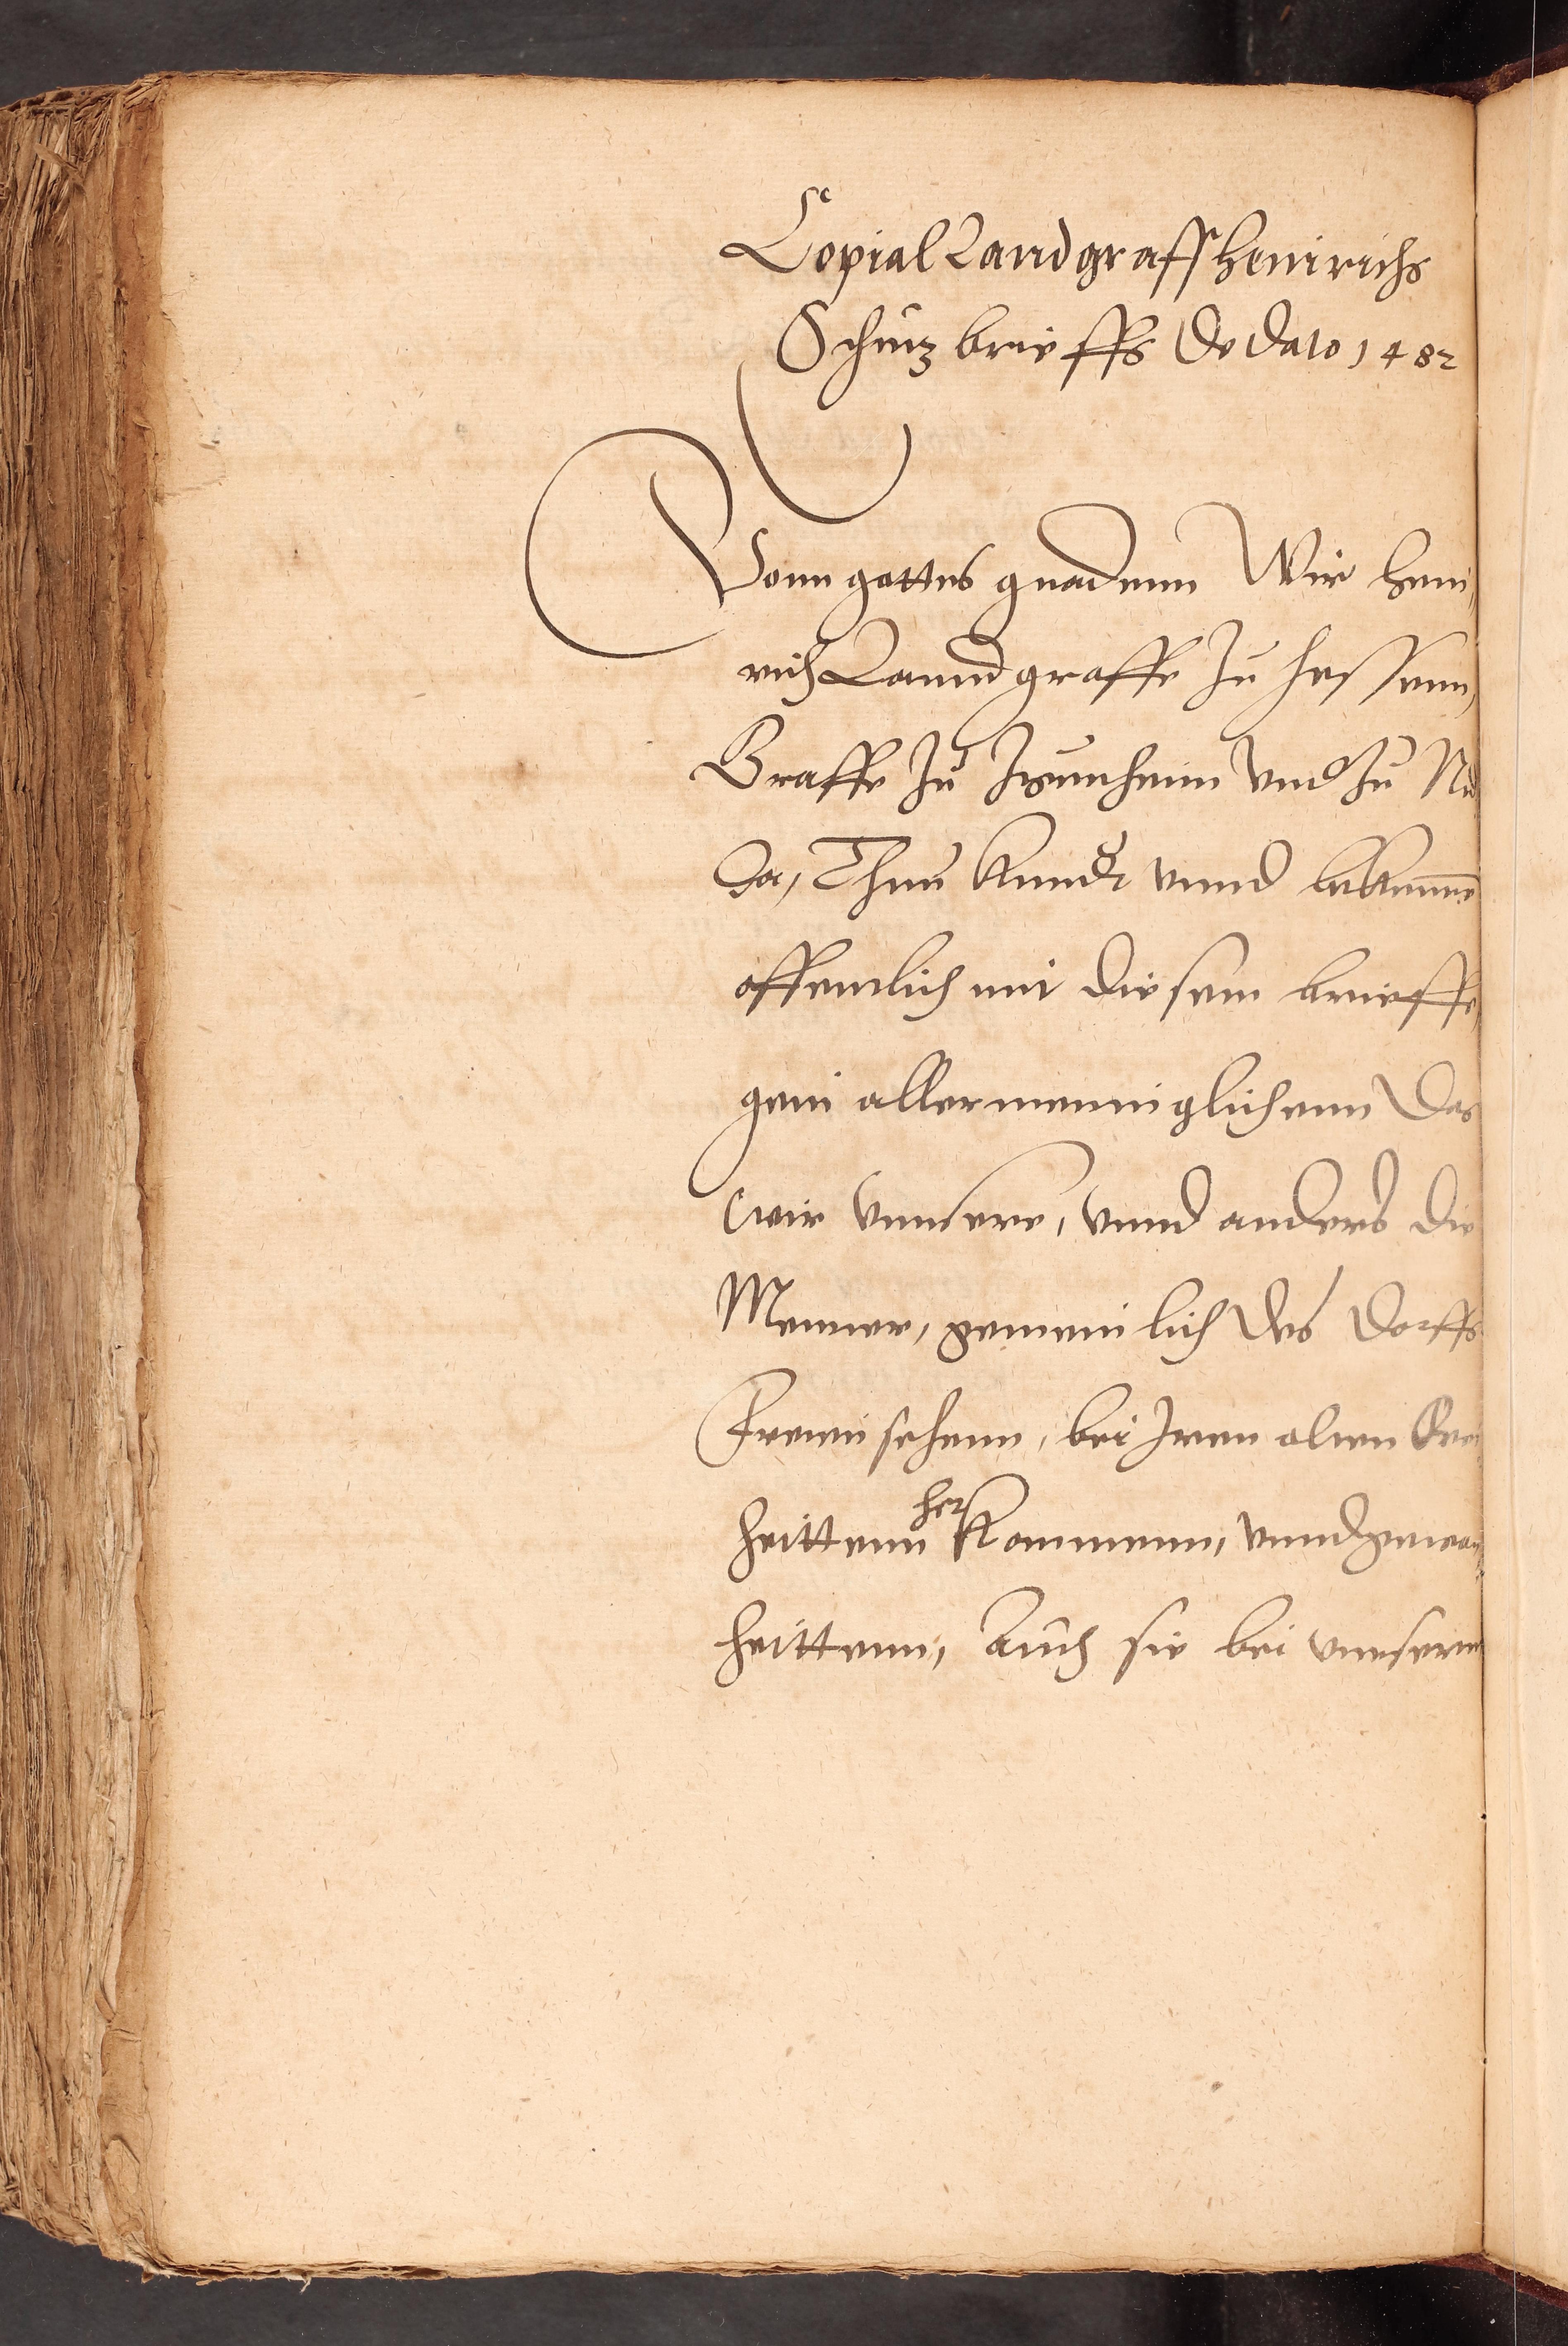 Copial Landgraff Heinrichs
Schutz brieffs De dato 1482
Vonn gottes gnadenn Wir Hein,
rich Lanndgraffe zu Hessenn,
Graffe zu Zigenheim vnd zu Nid
da, Thun kundt vnnd bekennen
offentlich mit diesem brieffe,
gein allermenniglichenn Das
wir vnnsere, vnnd anders die
Menner, gemeinlich des dorffs
Freiensehenn, bei Iren alten Frei
heittenn herkommenn, vnnd gewon
heittenn, Auch sie bei vnnserm